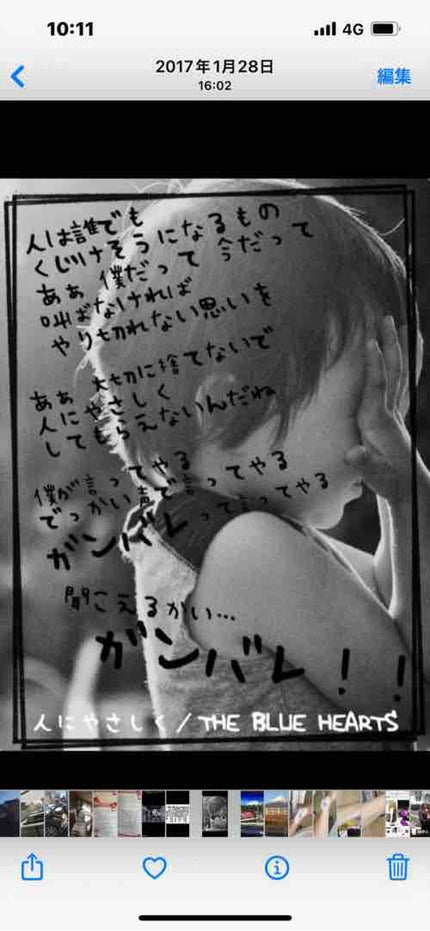 10:11
4G
2017年1月28日
16:02
編集
人は誰でも
くじけそうになるもの
ああ 僕だって 今だって
叫ばなければ
やり切れない思いを
ああ 大切に捨てないで
人にやさしく
してもらえないんだね
僕が言ってやる
でっかい声で言ってやる
ガンバレって言ってやる
聞こえるかい...
ガンバレ!!
人にやさしく/THE BLUE HEARTS